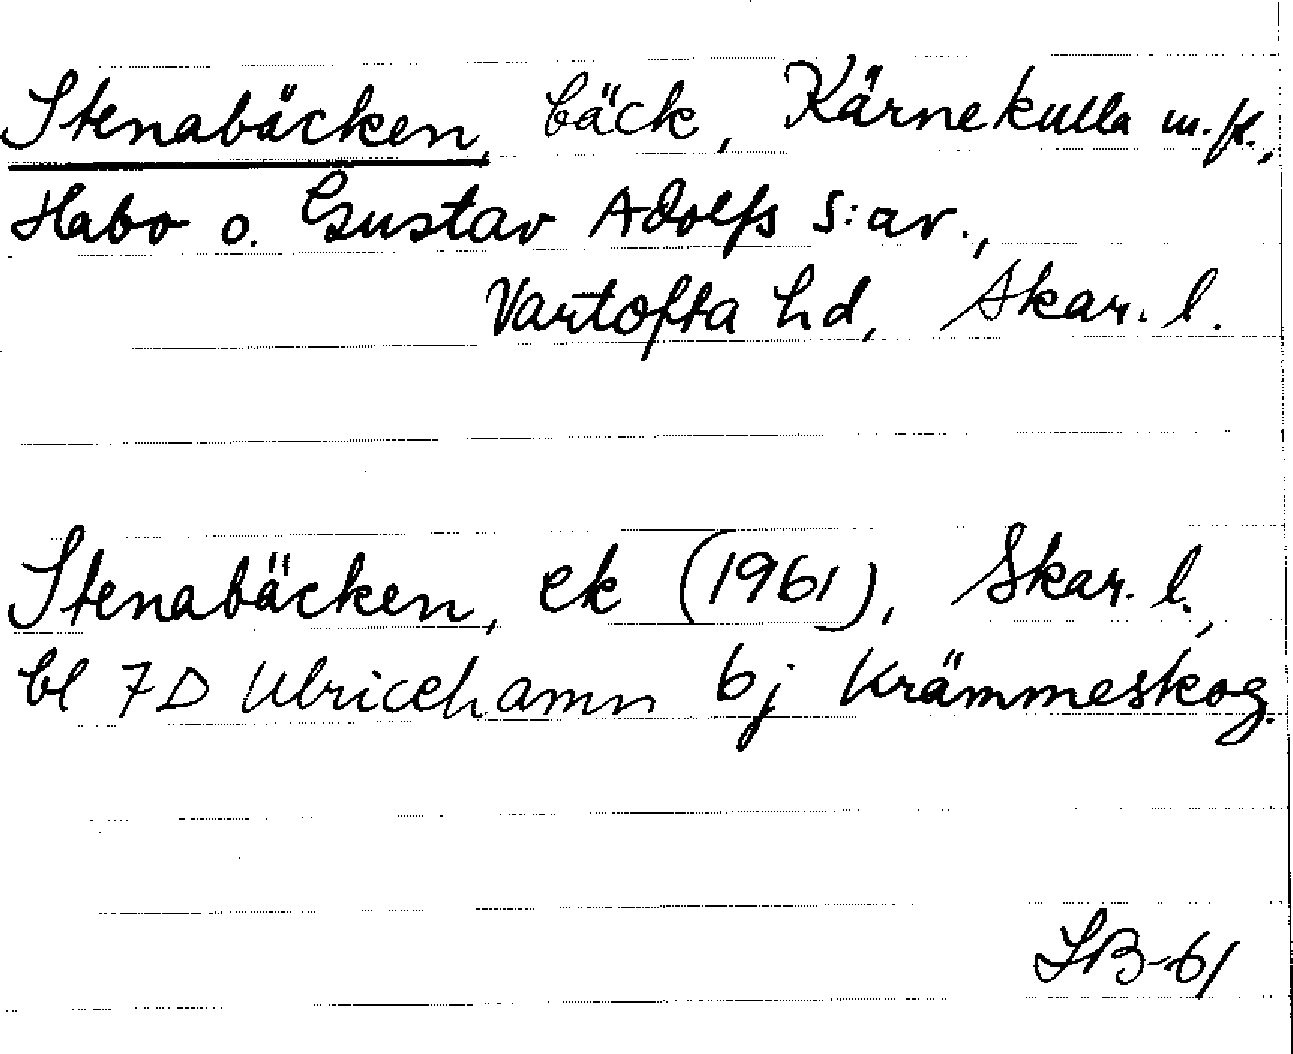 Stenabäcken, bäck, Kärnekulla m.fl.,
Habo o. Gustav Adolfs s:ar.,
Vartofta hd, Skar. l.
Stenabäcken, ek (1961), Skar. l.,
bl 7D Ulricehamn bj Krämmeskog.
SB-61